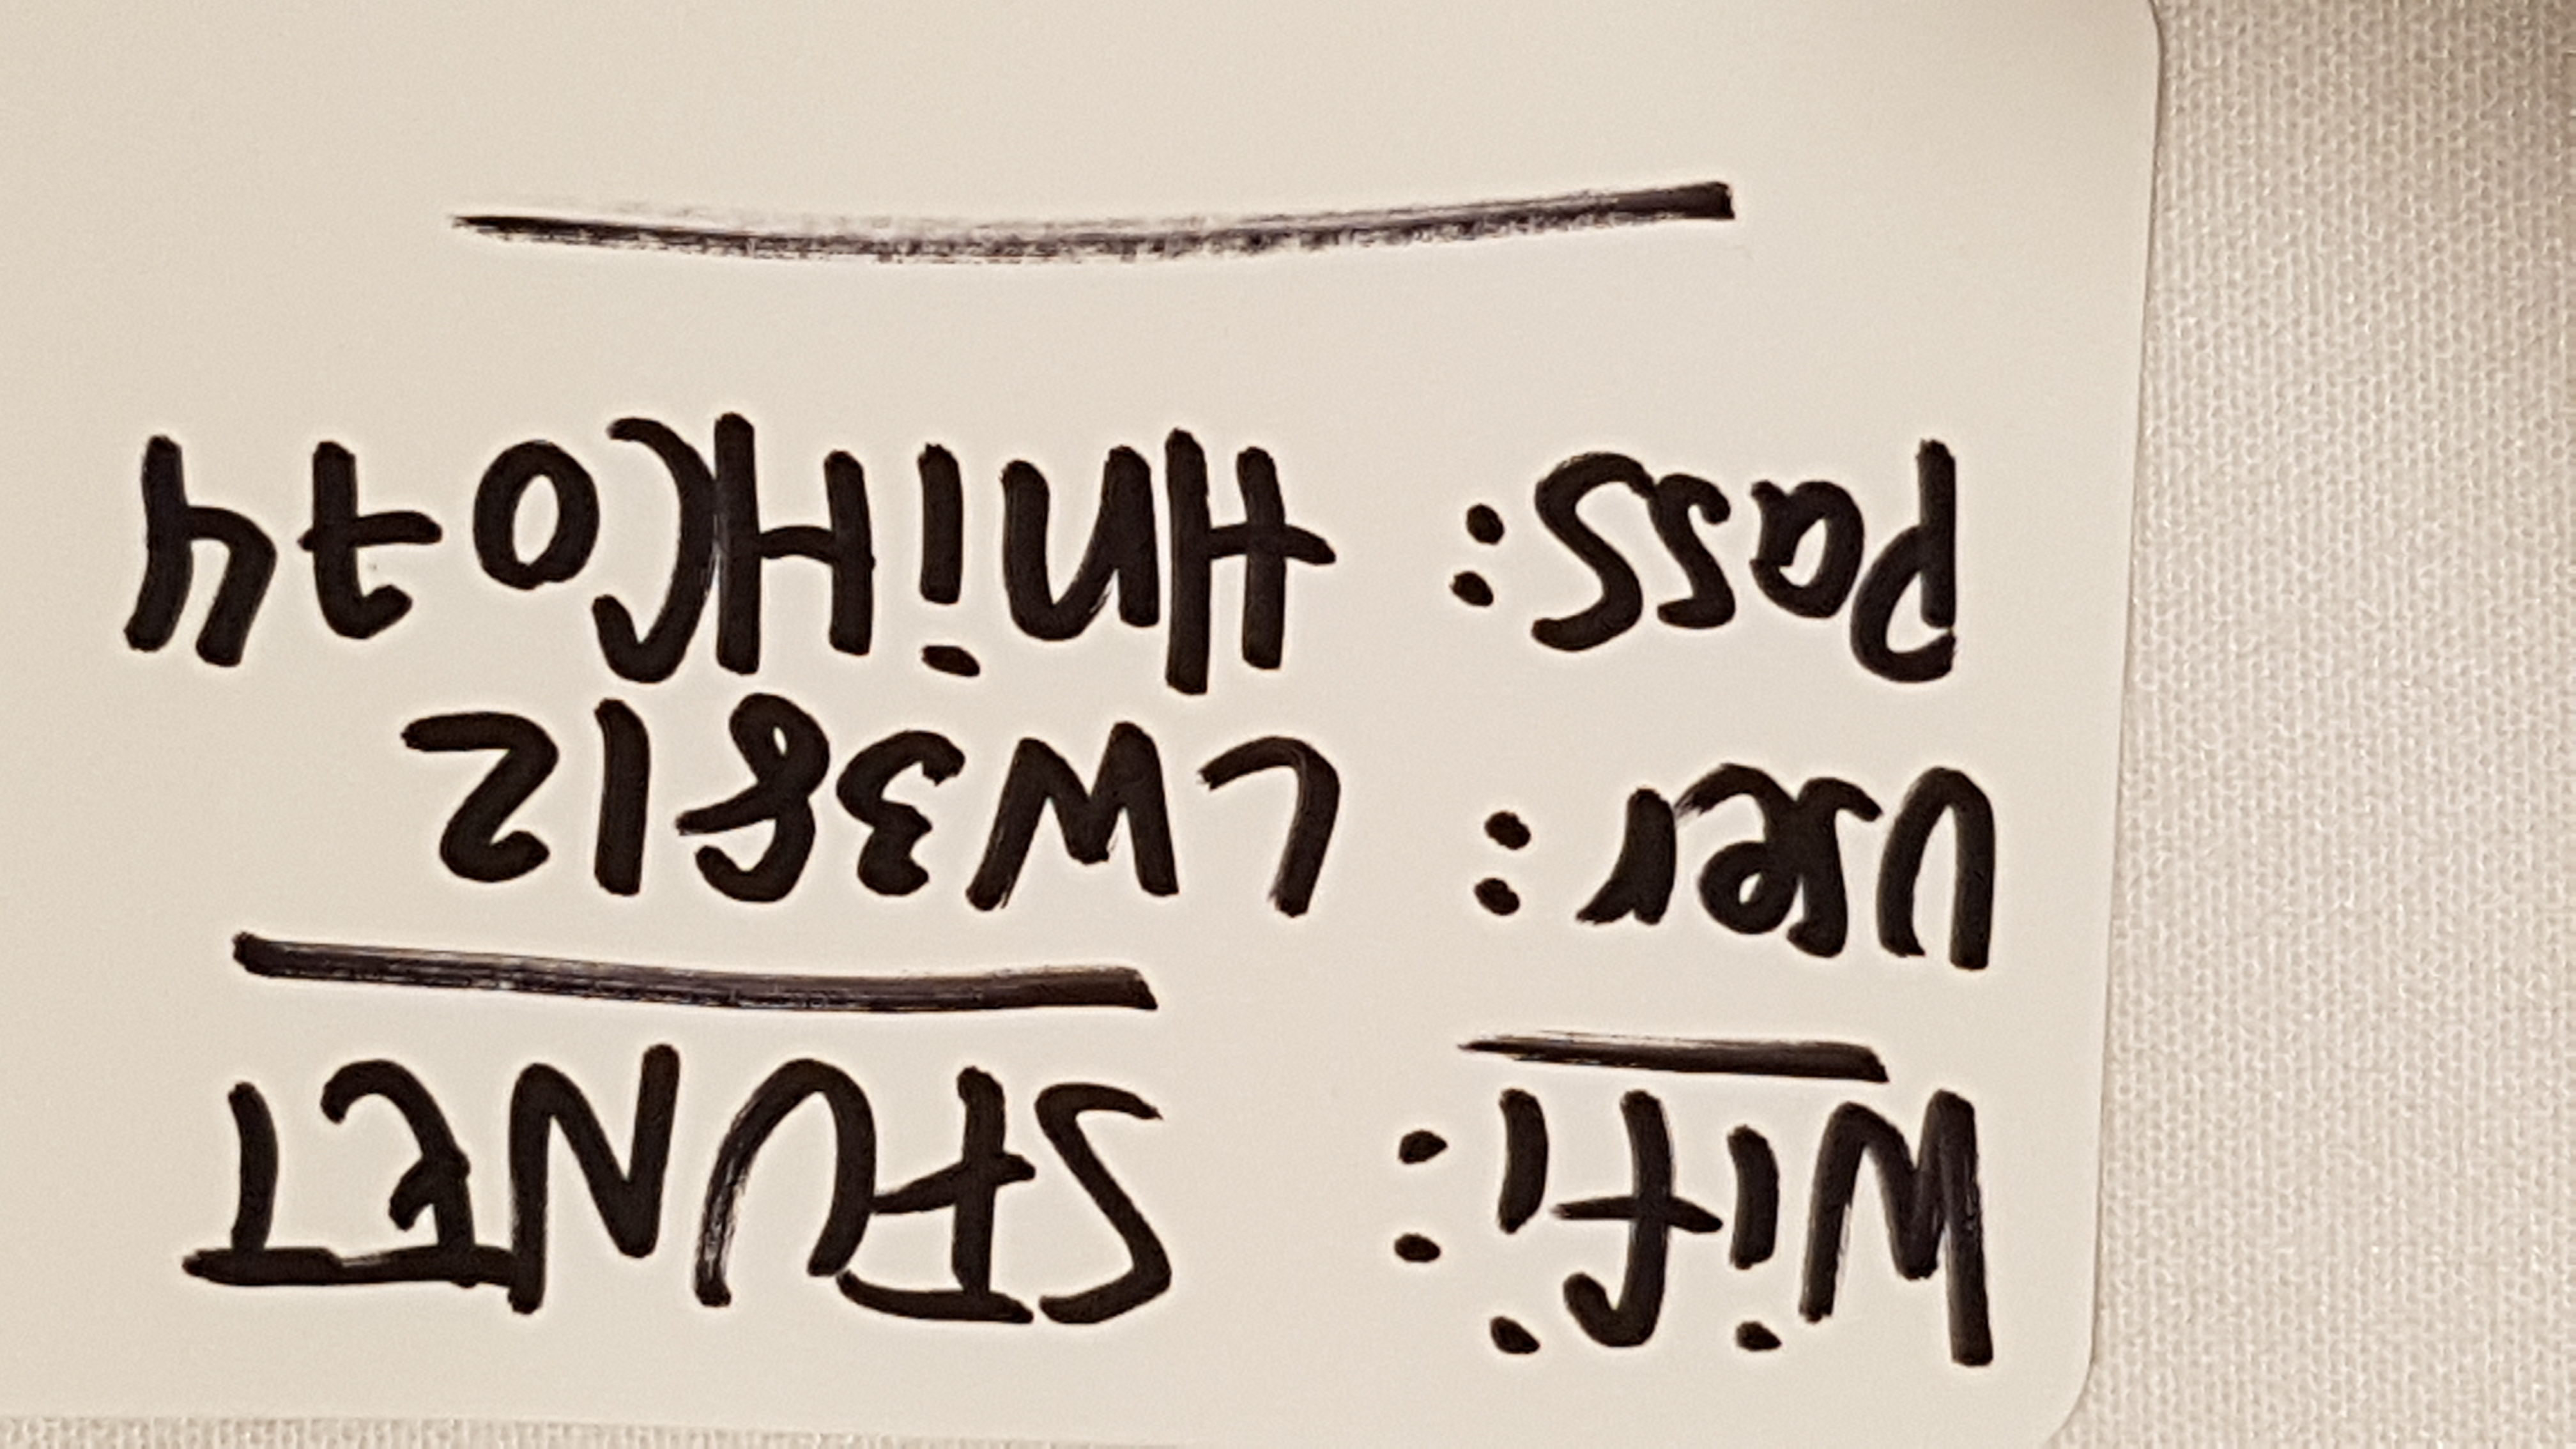 Wifi: SFUNET
User: LW3812
Pass: HniHCo74